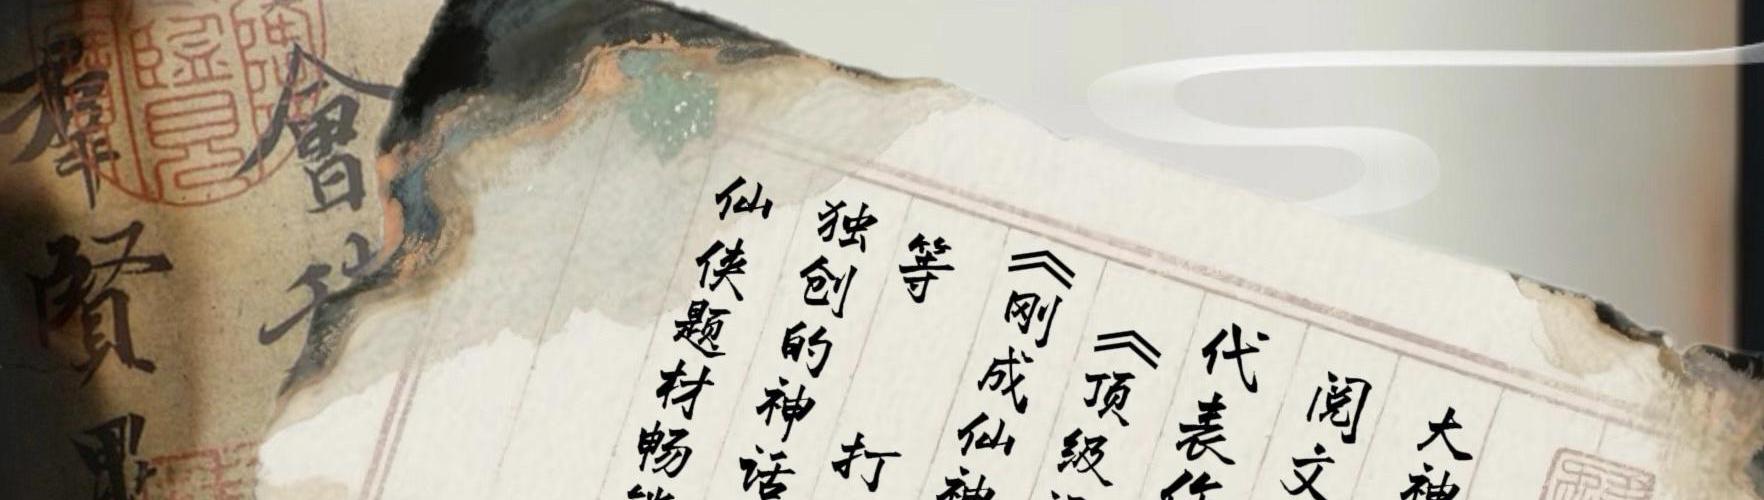 大神
阅文
代表作
《顶级
《刚成仙神
等 打
独创的神话
仙侠题材畅
會
羣賢